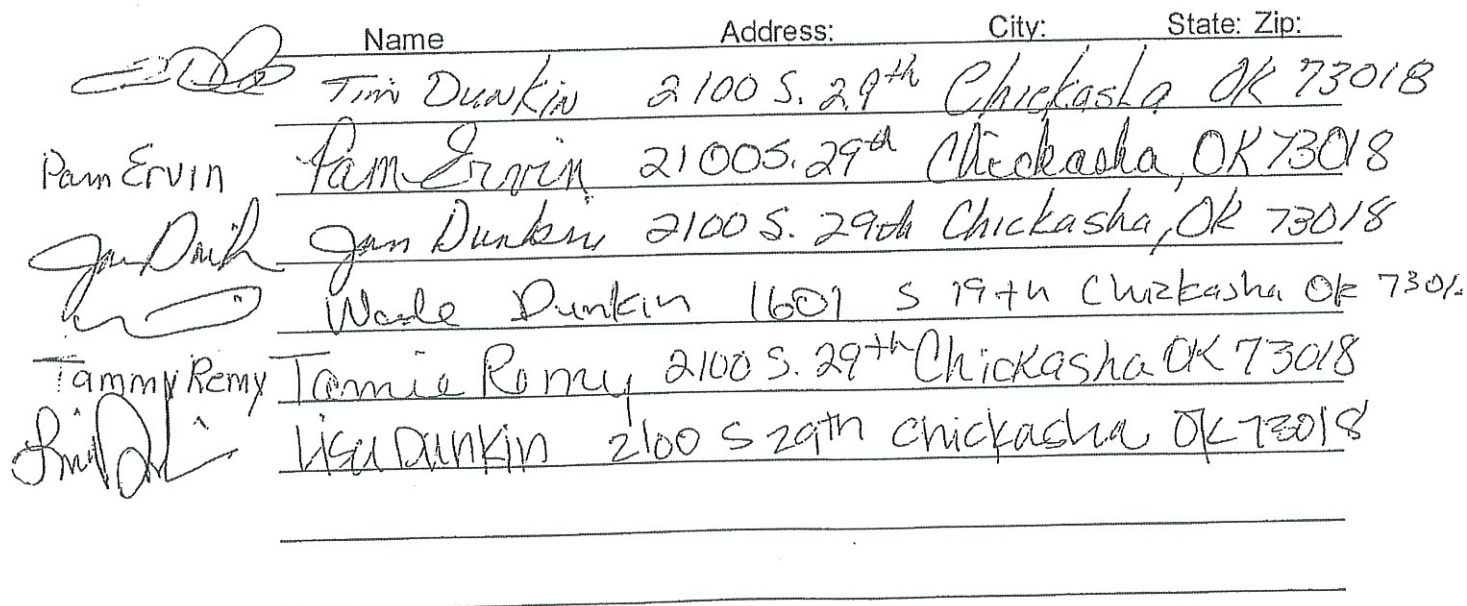 Name Address: City: State: Zip:
Tim Dunkin 2100 S. 29th Chickasha OK 73018
Pam Ervin Pam Ervin 2100 S. 29th Chickasha, OK 73018
Jan Dunkin 2100 S. 29th Chickasha, OK 73018
Wade Dunkin 1601 S 19th Chickasha OK 7301
Tammy Remy Tamie Remy 2100 S. 29th Chickasha OK 73018
Lisa Dunkin 2100 S 29th Chickasha OK 73018